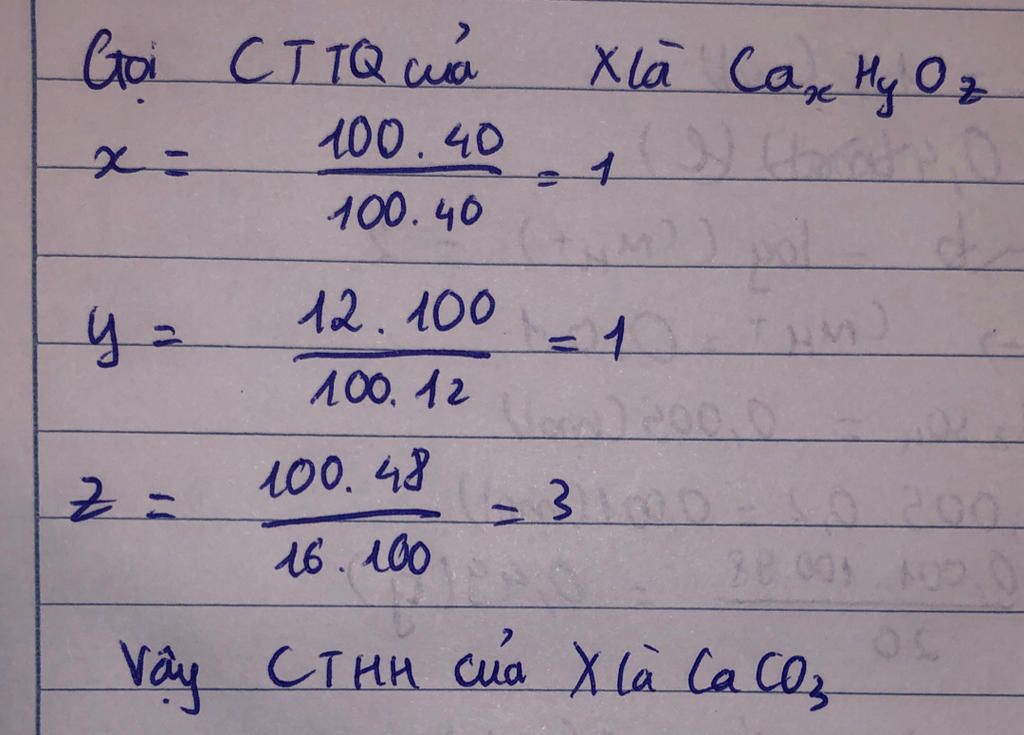 Gọi CTTQ của X là CaxHyOz
x = 100.40 / 100.40 = 1
y = 12.100 / 100.12 = 1
z = 100.48 / 16.100 = 3
Vậy CTHH của X là CaCO3